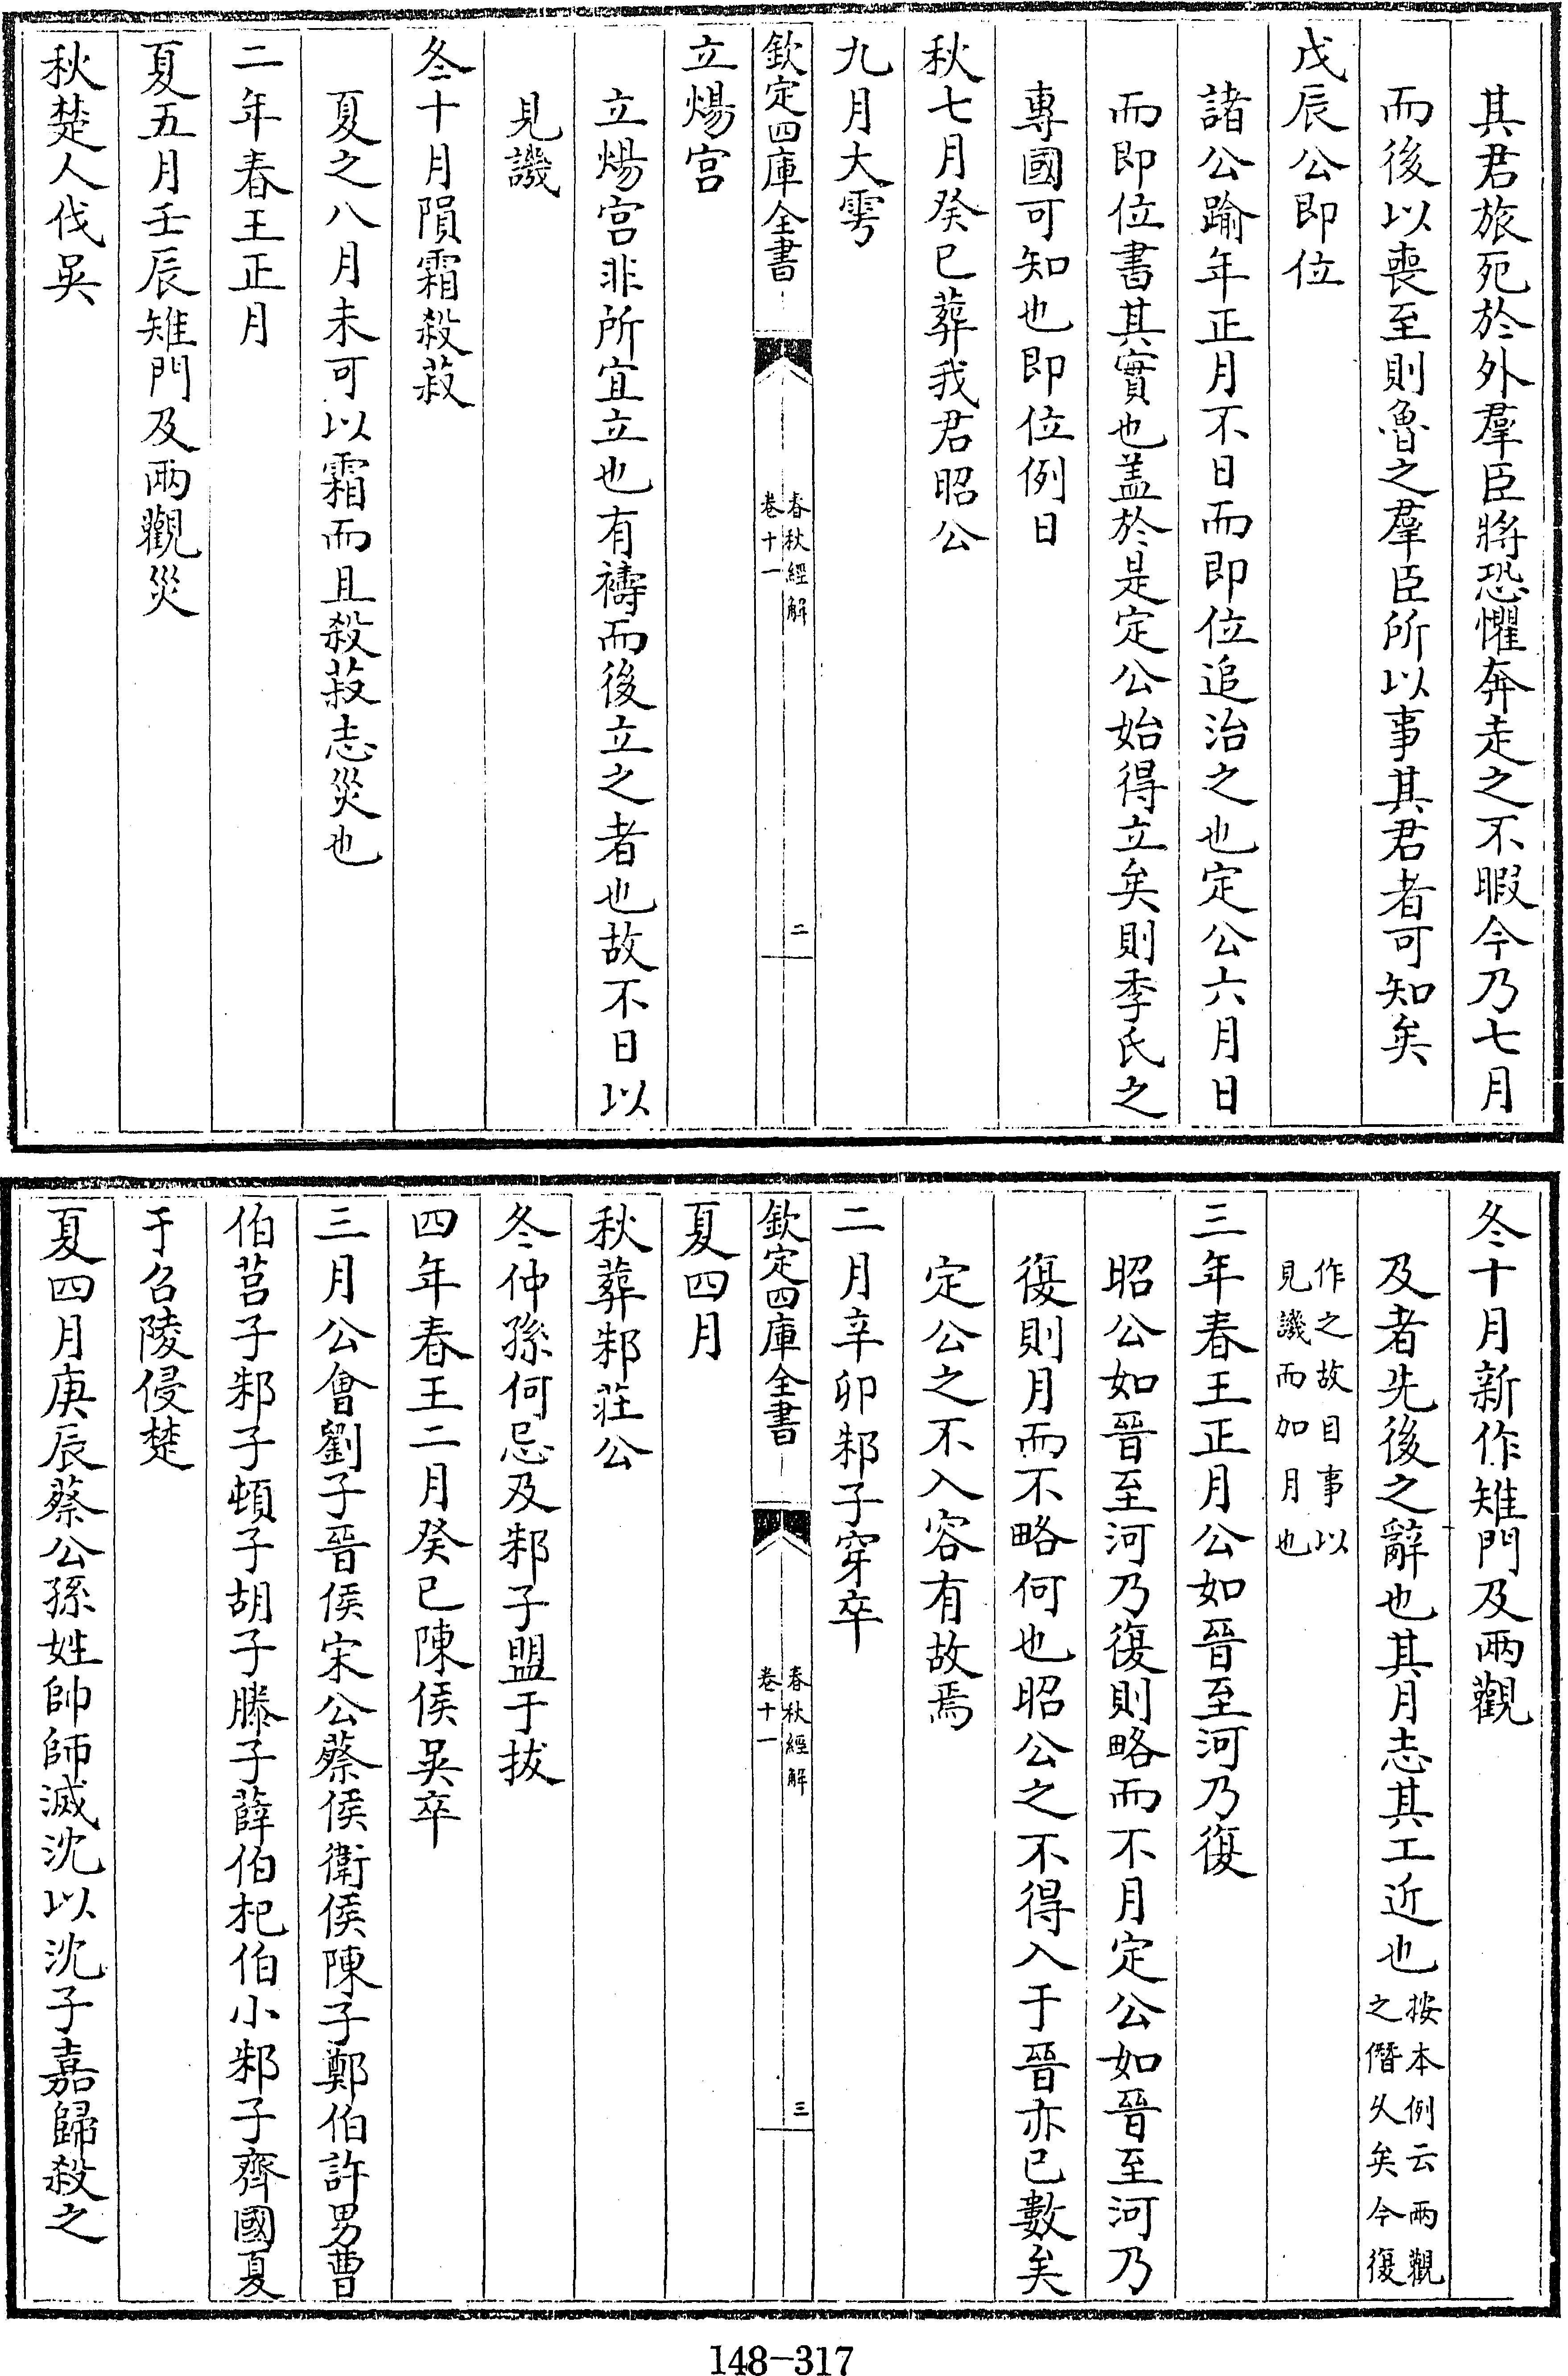 其君旅死於外羣臣將恐懼奔走之不暇今乃七月
而後以喪至則魯之羣臣所以事其君者可知矣
戊辰公即位
諸公踰年正月不日而即位追治之也定公六月日
而即位書其實也盖於是定公始得立矣則季氏之
專國可知也即位例日
秋七月癸巳葬我君昭公
九月大雩
欽定四庫全書
春秋經解
卷十一
二
立煬宫
立煬宫非所宜立也有禱而後立之者也故不日以
見譏
冬十月隕霜殺菽
夏之八月未可以霜而且殺菽志災也
二年春王正月
夏五月壬辰雉門及兩觀災
秋楚人伐吳
冬十月新作雉門及兩觀
及者先後之辭也其月志其工近也按本例云兩觀
之僭久矣今復
作之故目事以
見譏而加月也
三年春王正月公如晉至河乃復
昭公如晉至河乃復則略而不月定公如晉至河乃
復則月而不略何也昭公之不得入于晉亦已數矣
定公之不入容有故焉
二月辛卯邾子穿卒
欽定四庫全書
春秋經解
卷十一
三
夏四月
秋葬邾莊公
冬仲孫何忌及邾子盟于拔
四年春王二月癸巳陳侯吳卒
三月公會劉子晉侯宋公蔡侯衛侯陳子鄭伯許男曹
伯莒子邾子頓子胡子滕子薛伯杞伯小邾子齊國夏
于召陵侵楚
夏四月庚辰蔡公孫姓帥師滅沈以沈子嘉歸殺之
148-317